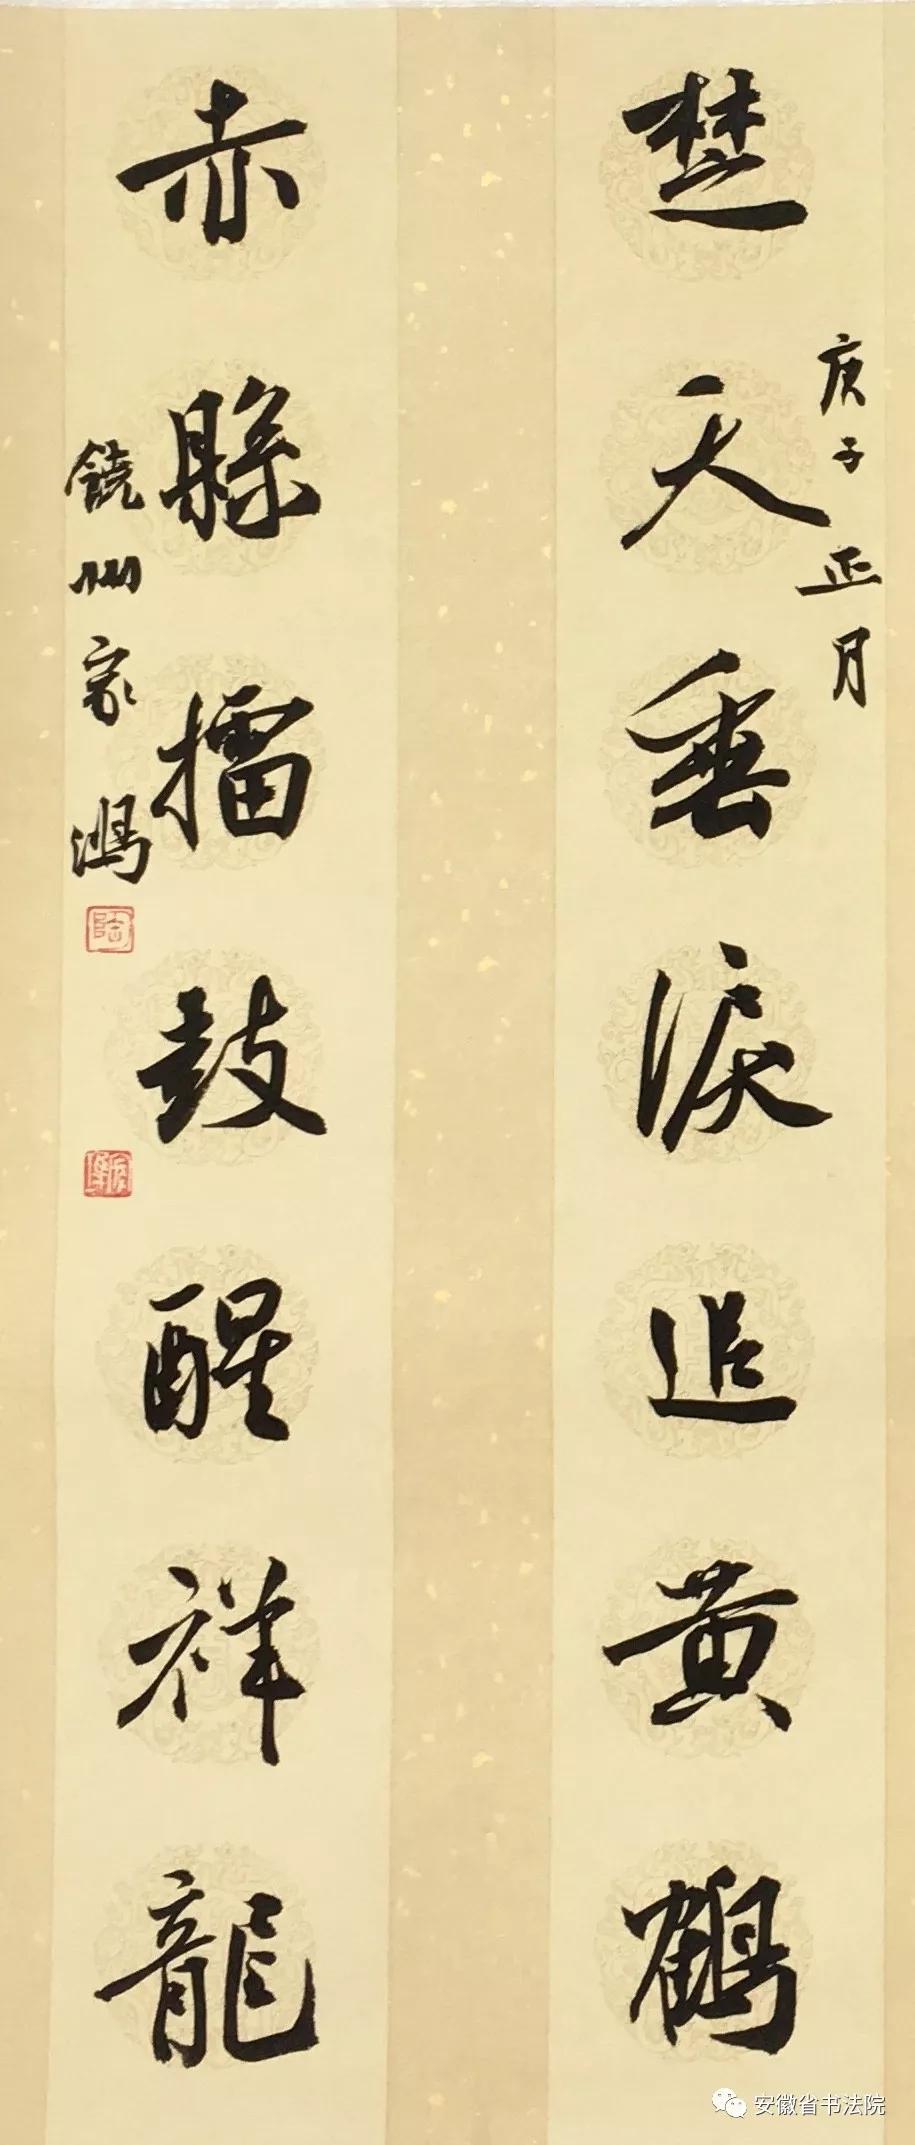 庚子正月
楚天垂淚追黄鶴
赤縣擂鼓醒祥龍
饒州家鴻
陶
安徽省书法院